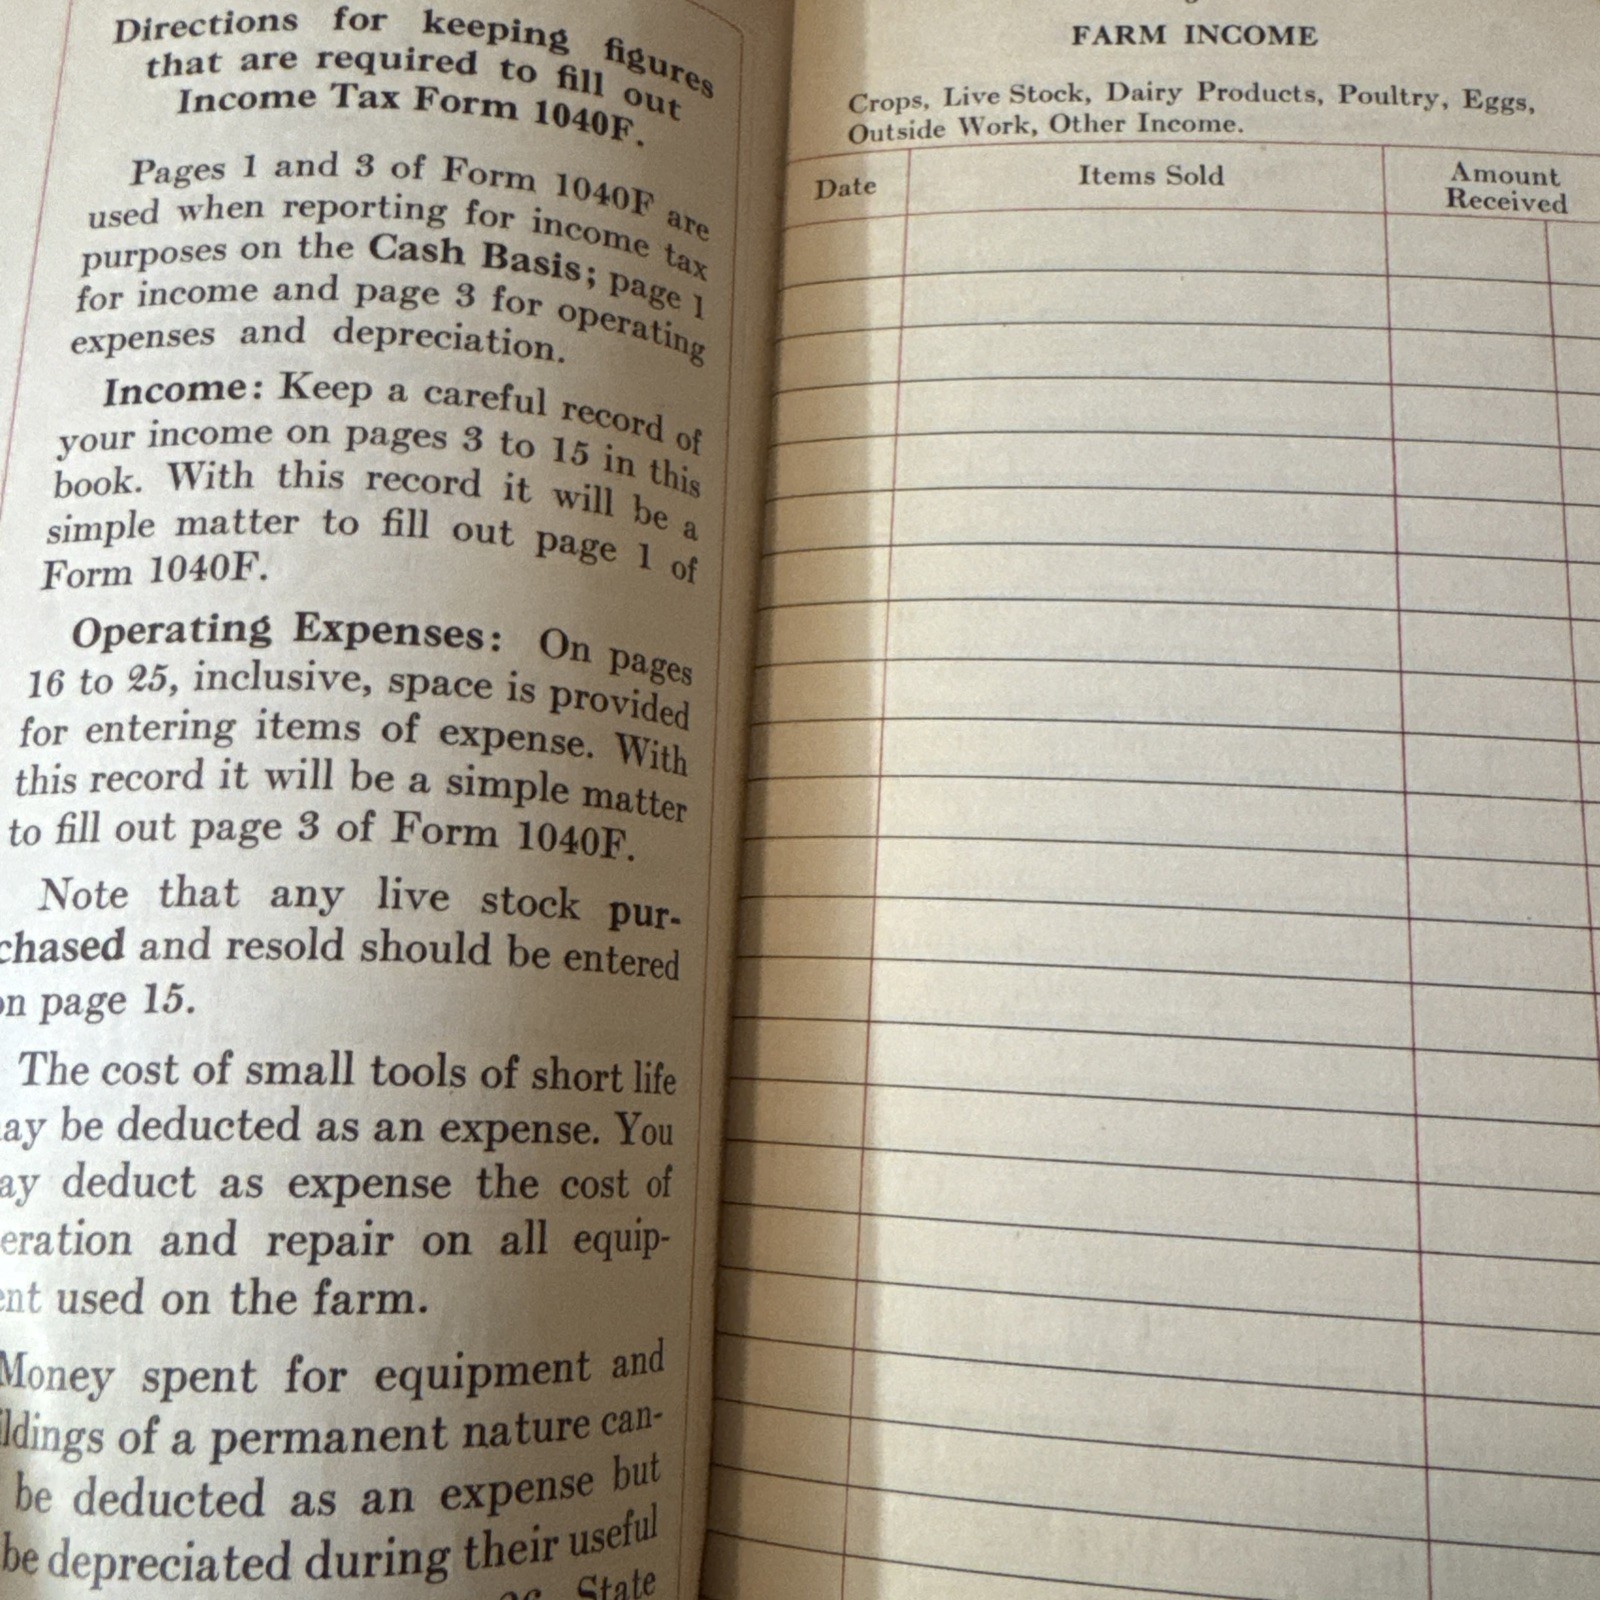 Directions for keeping figures
that are required to fill out
Income Tax Form 1040F.
Pages 1 and 3 of Form 1040F are
used when reporting for income tax
purposes on the Cash Basis; page 1
for income and page 3 for operating
expenses and depreciation.
Income: Keep a careful record of
your income on pages 3 to 15 in this
book. With this record it will be a
simple matter to fill out page 1 of
Form 1040F.
Operating Expenses: On pages
16 to 25, inclusive, space is provided
for entering items of expense. With
this record it will be a simple matter
to fill out page 3 of Form 1040F.
Note that any live stock pur-
chased and resold should be entered
on page 15.
The cost of small tools of short life
ay be deducted as an expense. You
ay deduct as expense the cost of
eration and repair on all equip-
ent used on the farm.
Money spent for equipment and
ldings of a permanent nature can-
be deducted as an expense but
be depreciated during their useful
State
FARM INCOME
Crops, Live Stock, Dairy Products, Poultry, Eggs,
Outside Work, Other Income.
Date
Items Sold
Amount
Received